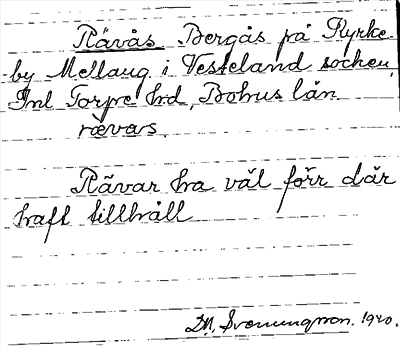 Rävås Bergås på Kyrke-
by Mellaug. i Vesteland socken,
Inl Torpe hd, Bohus län.
rævas
Rävar ha väl förr där
haft tillhåll
D.N. Svenungsson. 1920.